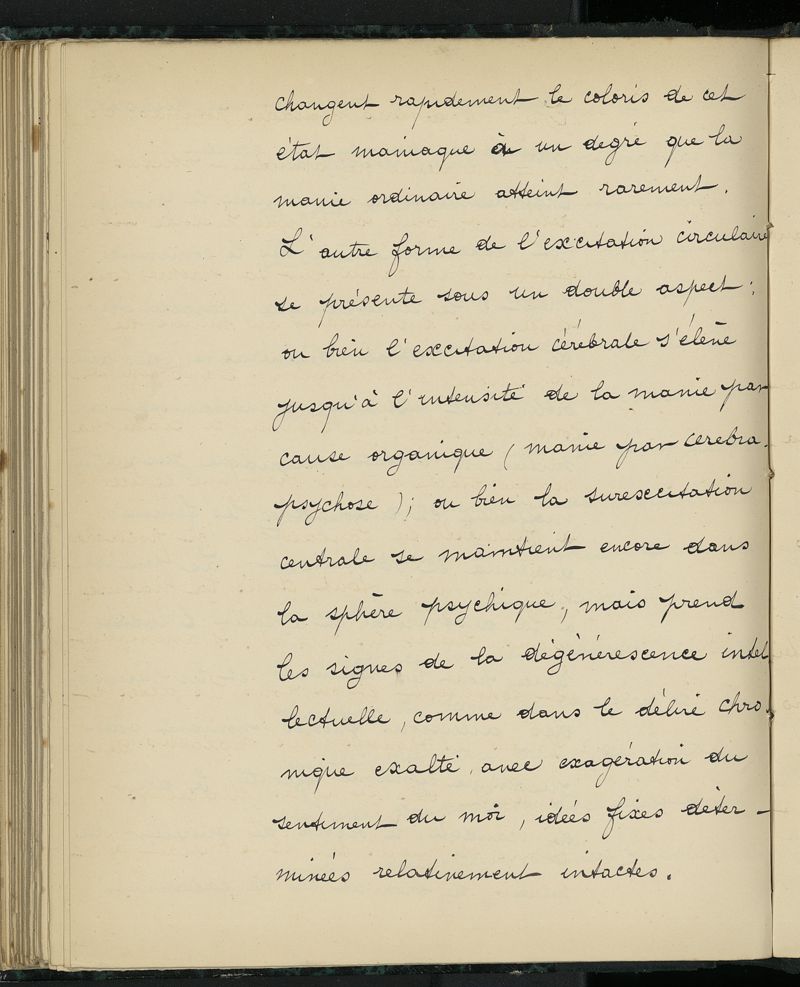 changent rapidement le coloris de cet
état maniaque à un degré que la
manie ordinaire atteint rarement.
L'autre forme de l'excitation circulaire
se présente sous un double aspect :
ou bien l'excitation cérébrale s'élève
jusqu'à l'intensité de la manie par
cause organique (manie par cerebra-
psychose); ou bien la surexcitation
centrale se maintient encore dans
la sphère psychique, mais prend
les signes de la dégénérescence intel
lectuelle, comme dans le délire chro-
nique exalté, avec exagération du
sentiment du moi, idées fixes déter-
minées relativement intactes.